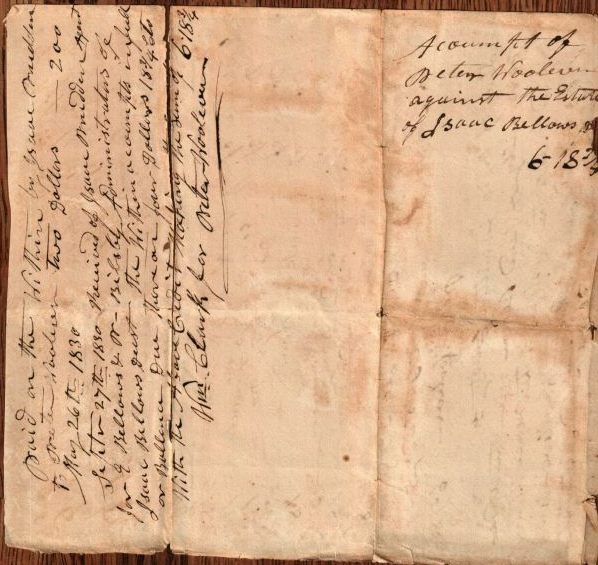 Acoumpt of
Peter Woolever
against the Estate
of Isaac Bellows
6-18 3/4
Paid on the Within by Isaac
to Peter Woolever two Dollars 200
May 26th 1830
Septr 27th 1830 Received of Isaac
for Bellows & Administrators of
Isaac Bellows the Within acoumpt in full
or Ballance due thereon four Dollars 18 3/4 Cts
With the above Credit making the sum of 6.18 3/4
Wm. Clark for Peter Woolever